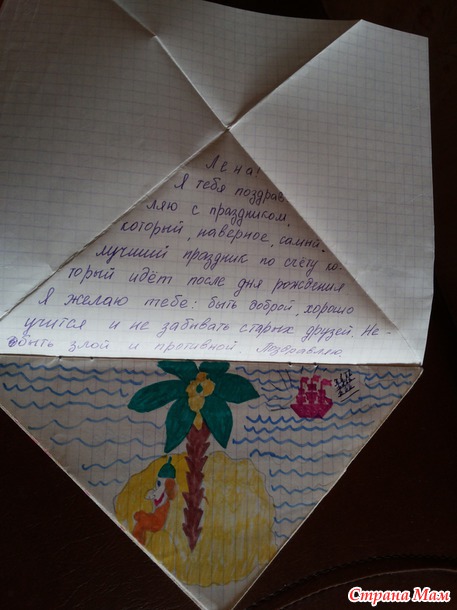 Лена!
Я тебя поздрав
ляю с праздником,
который, наверное, самый
лучший праздник по счёту ко-
торый идёт после дня рождения
Я желаю тебе: быть доброй, хорошо
учится и не забывать старых друзей. Не-
быть злой и противной. Поздравляю.
Страна Мам